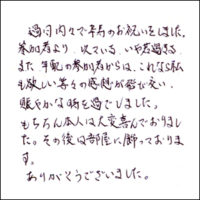 過日内々で長寿のお祝いをしました。
参加者より、似ている、いや若過ぎる、
また年配の参加者からは、これなら私
も欲しい等々の感想が飛び交い、
賑やかな時を過ごしました。
もちろん本人は大変喜んでおりまし
た。その後は部屋に飾っておりま
す。
ありがとうございました。